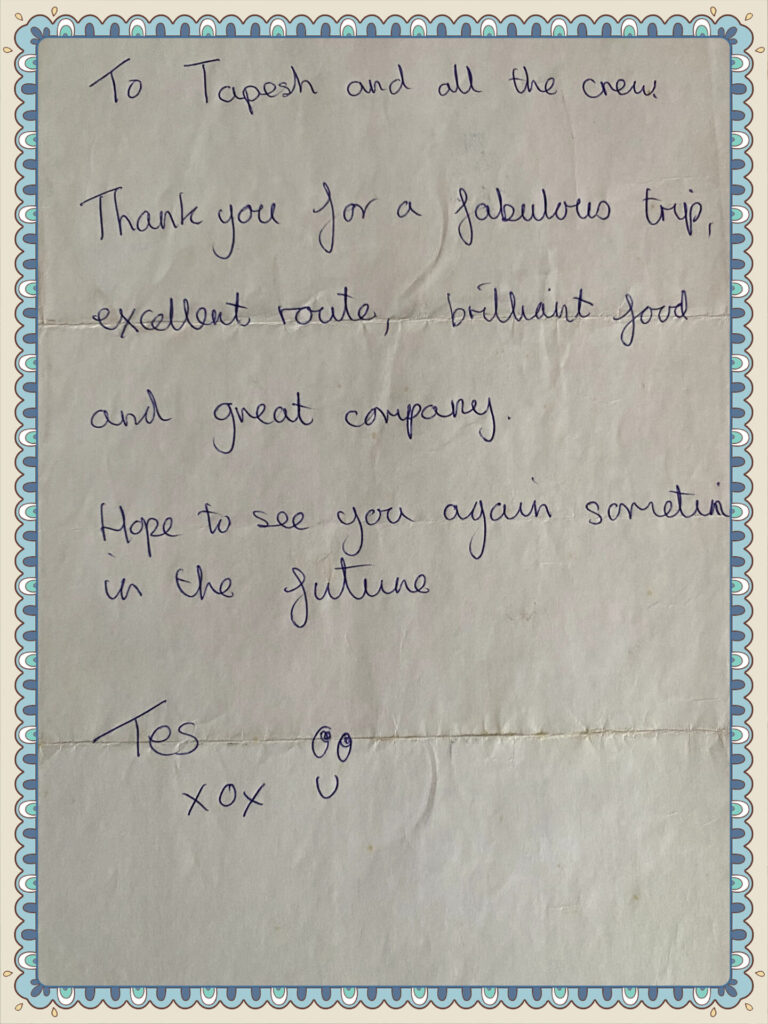 To Tapesh and all the crew.
Thank you for a fabulous trip,
excellent route, brilliant food
and great company.
Hope to see you again sometim
in the future
Tes
xox